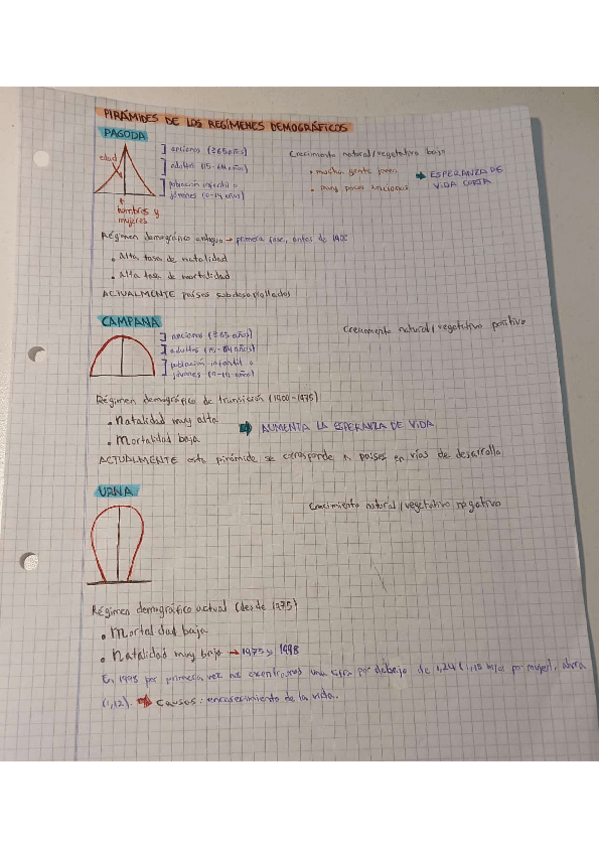 PIRÁMIDES DE LOS REGÍMENES DEMOGRÁFICOS
PAGODA
edad
ancianos (≥65 años)
adultos (15-64 años)
población infantil o
jóvenes (0-14 años)
hombres y
mujeres
Crecimiento natural/vegetativo bajo
• mucha gente joven
• muy pocos ancianos
→ ESPERANZA DE
VIDA CORTA
Régimen demográfico antiguo → primera fase, antes de 1900
• Alta tasa de natalidad
• Alta tasa de mortalidad
ACTUALMENTE países subdesarrollados
CAMPANA
ancianos (≥65 años)
adultos (15-64 años)
población infantil o
jóvenes (0-14 años)
Crecimiento natural/vegetativo positivo
Régimen demográfico de transición (1900-1975)
• Natalidad muy alta
• Mortalidad baja
→ AUMENTA LA ESPERANZA DE VIDA
ACTUALMENTE esta pirámide se corresponde a países en vías de desarrollo
URNA
Crecimiento natural/vegetativo negativo
Régimen demográfico actual (desde 1975)
• Mortalidad baja
• Natalidad muy baja → 1975 y 1998
En 1998 por primera vez nos encontramos una cifra por debajo de 1,24 (1,15 por mujer), ahora
(1,12). → Causas: encarecimiento de la vida.